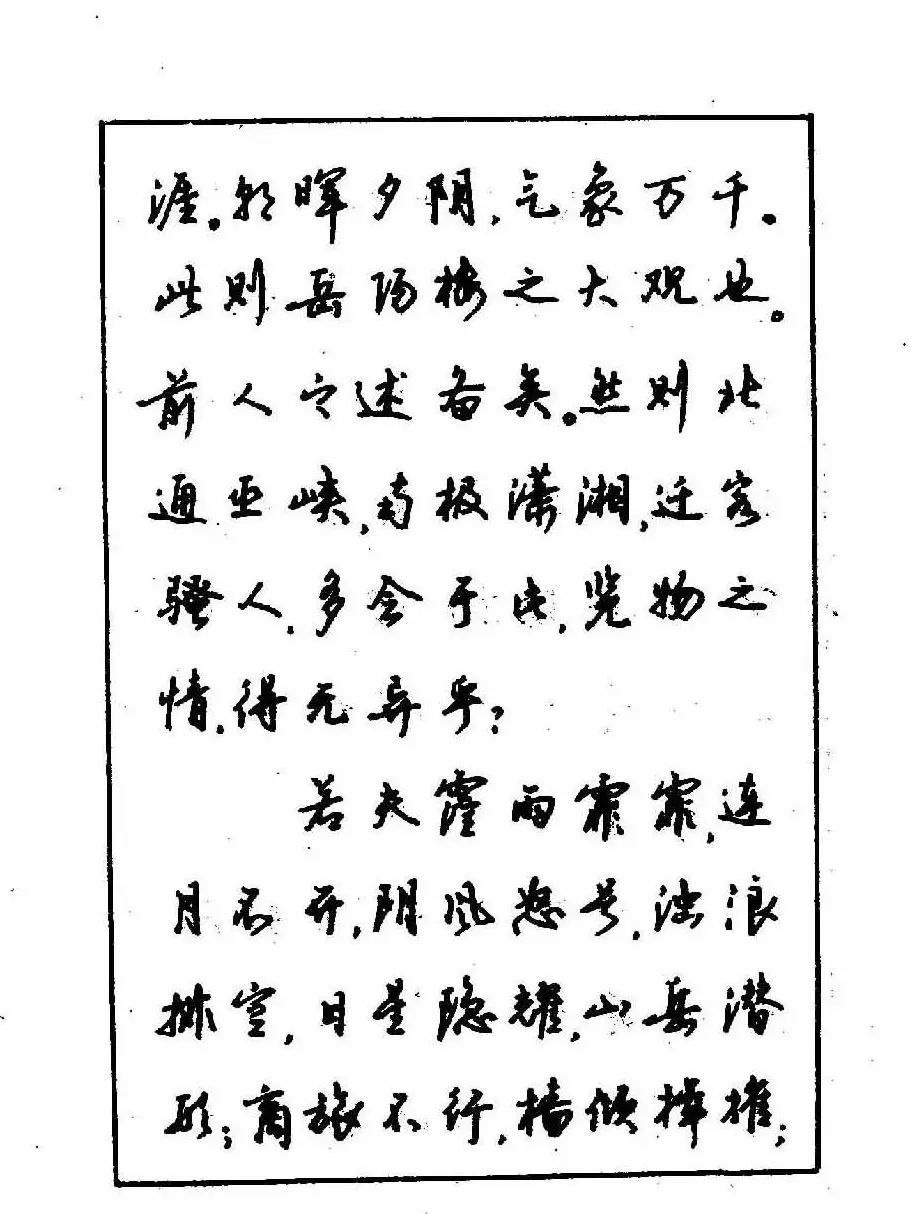 涯。朝晖夕阴,气象万千。
此则岳阳楼之大观也。
前人之述备矣。然则北
通巫峡,南极潇湘,迁客
骚人,多会于此,览物之
情,得无异乎?
若夫霪雨霏霏,连
月不开,阴风怒号,浊浪
排空,日星隐耀,山岳潜
形;商旅不行,樯倾楫摧;